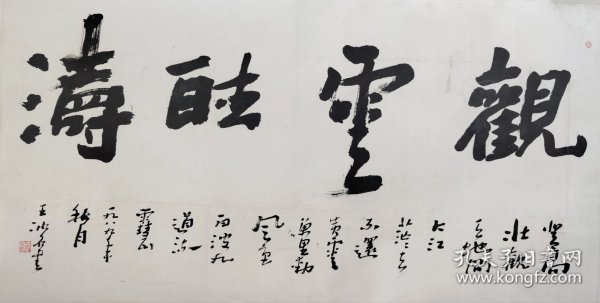 觀雲聽濤
登高
壯觀
天地間
大江
茫茫去
不還
黃雲
萬里動
風色
白波九
道流
雪山
一九八九年
秋月
王冰石書
孔夫子旧书网
www.kongfz.com